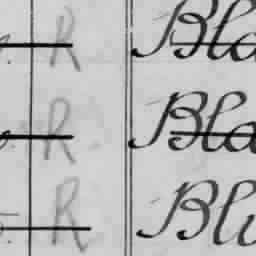 R Bla
R Bla
R Blu